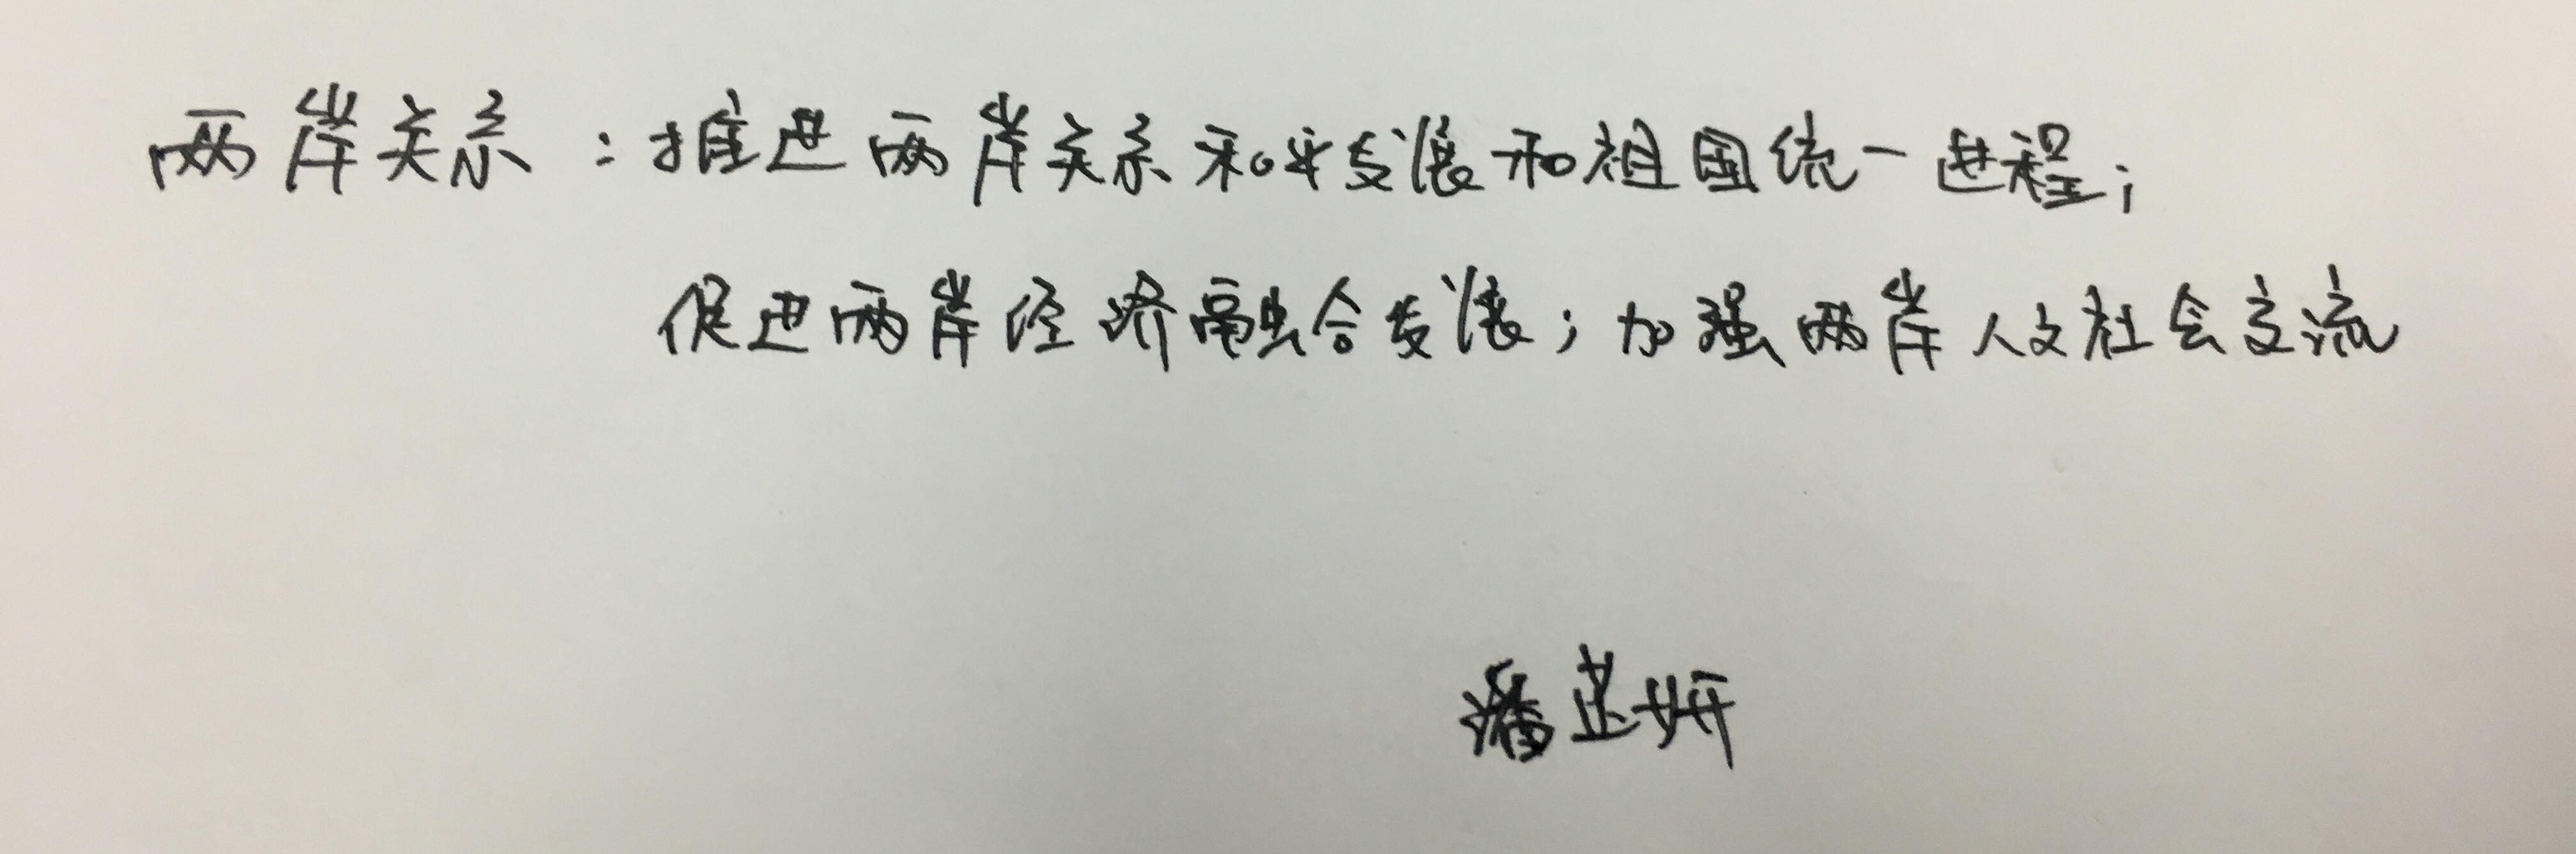 两岸关系：推进两岸关系和平发展和祖国统一进程；
促进两岸经济融合发展；加强两岸人文社会交流
潘芷妍